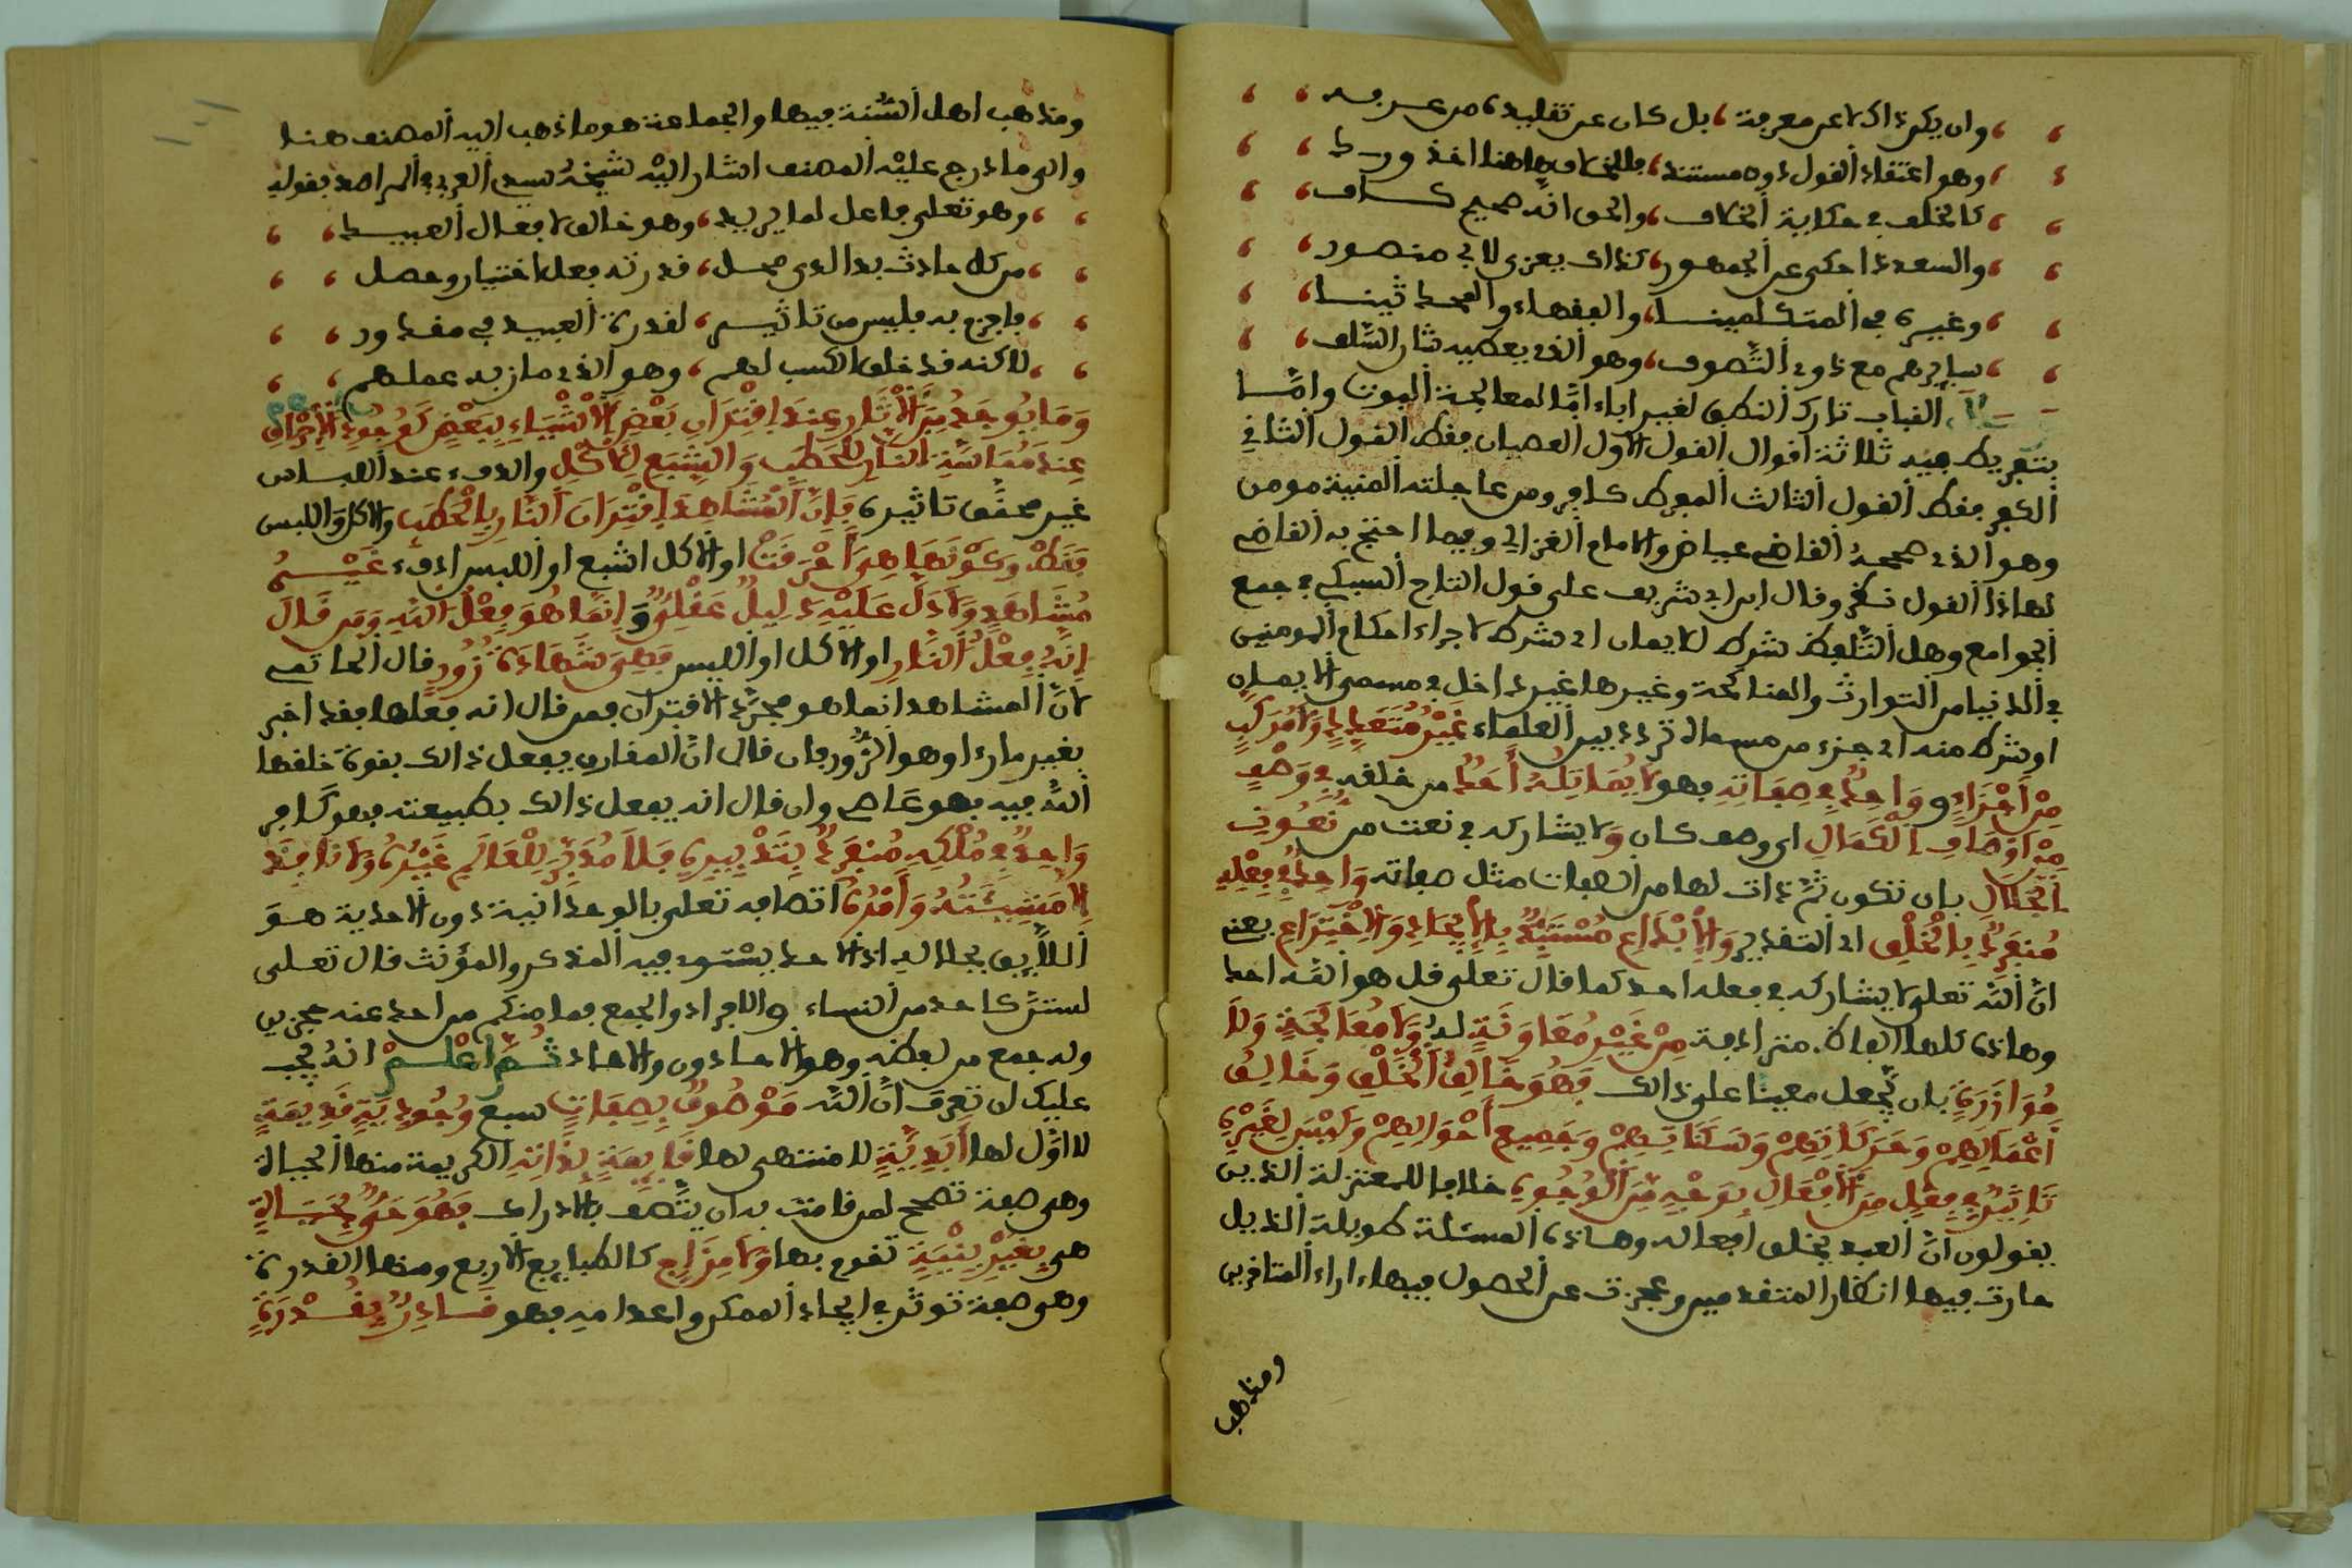 وان يكن ذاك لا عن معرفة، بل كان عن تقليد، من عرفه
وهو اعتقاد القول دون مستند، فالخلاف هاهنا قد ورد
كالخلف في حكاية الخلاف، والحق انه صحيح كاف
والسعد ذا حكى عن الجمهور، كذاك يعزى لابي منصور
وغيره من المتكلمينا، والفقهاء والمحدثينا
سايرهم مع ذوي التصوف، وهو الذي يعطيه شان السلف
القباب تارك النطق لغير اباء اما لمعالجة الموت واما
بتفريط فيه ثلاثة اقوال القول الاول العصيان فقط القول الثاني
الكفر فقط القول الثالث المفرط كافر ومن عاجلته المنية مومن
وهو الذي صححه القاضي عياض والامام الغزالي وفيما احتج به القاضي
لهاذا القول نظر وقال ابن ابي شريف على قول التاج السبكي في جمع
الجوامع وهل التلفظ شرط للايمان اي شرط لاجراء احكام المومنين
في الدنيا من التوارث والمناكحة وغيرها غير داخل في مسمى الايمان
او شطر منه اي جزء من مسماه تردد بين العلماء غَيْرُ مُتَعَدِّدٍ وَلَا مُرَكَّبٍ
مِنْ أَجْزَاءٍ وَوَاحِدٌ فِي صِفَاتِهِ فهو لَا يُمَاثِلُهُ أَحَدٌ من خلقه فِي وَصْفٍ
مِنْ أَوْصَافِ الْكَمَالِ اي وصف كان وَلا يشاركه في نعت من نُعُوتِ
الْجَلَالِ بان تكون ثم ذات لها من الصفات مثل صفاته وَاحِدٌ فِي فِعْلِهِ
مُنْفَرِدٌ بِالْخَلْقِ اي التقدير وَالْإِبْدَاعِ مُسْتَبِدٌّ بِالْإِيجَادِ وَالْاِخْتِرَاعِ يعني
ان الله تعلى لا يشاركه في فعله احد كما قال تعلى قل هو الله احد
وهاذه كلها الفاظ مترادفة مِنْ غَيْرِ مُعَاوَنَةٍ لَهُ وَلَا مُعَالَجَةٍ وَلَا
مُوَازَرَةٍ بان يجعل معينا على ذالك فَهُوَ خَالِقُ الْخَلْقِ وَخَالِقُ
أَعْمَالِهِمْ وَحَرَكَاتِهِمْ وَسَكَنَاتِهِمْ وَجَمِيعِ أَحْوَالِهِمْ وَلَيْسَ لِغَيْرِهِ
تَاثِيرٌ فِي فِعْلٍ مِنَ الْأَفْعَالِ بِوَجْهٍ مِنَ الْوُجُوهِ خلافا للمعتزلة الذين
يقولون ان العبد يخلق افعاله وهاذه المسئلة طويلة الذيل
حارت فيها انظار المتقدمين وعجزت عن الحصول فيها اراء المتاخرين
ومذهب
ومذهب اهل السنة فيها والجماعة هو ما ذهب اليه المصنف هنا
والى ما درج عليه المصنف اشار اليه شيخه سيدي العربي في المراصد بقوله
وهو تعلى فاعل لما يريد، وهو خالق لافعال العبيد
من كل حادث بدا لدى محل، قدرته بعد اختيار وحصل
فاجزم به فليس من تاثير، لقدرة العبيد في مقدور
لاكنه قد خلق الكسب لهم، وهو الذي مازبه عملهم
وَمَا يُوجَدُ مِنَ الْآثَارِ عِنْدَ اِقْتِرَانِ بَعْضِ الْأَشْيَاءِ بِبَعْضٍ كَوُجُودِ الْإِحْرَاقِ
عِنْدَ مُمَاسَّةِ النَّارِ لِلْحَطَبِ وَالشِّبَعِ لِلْأَكْلِ والدفء عند اللباس
غير محقق تاثيره فَإِنَّ الْمُشَاهَدَ اِقْتِرَانُ النَّارِ بِالْحَطَبِ والاكل واللبس
فَقَطْ وَكَوْنُهَا هِيَ أَحْرَقَتْ او الاكل اشبع او اللبس ادفء غَيْرُ
مُشَاهَدٍ وَلَا دَلَّ عَلَيْهِ دَلِيلٌ عَقْلِيٌّ وَإِنَّمَا هُوَ فِعْلُ اللَّهِ وَمَن قَالَ
إِنَّهُ فِعْلُ النَّارِ او الاكل او اللبس فَهِيَ شَهَادَةُ زُورٍ قال الحاتمي
لان المشاهد انما هو مجرد الاقتران فمن قال انه فعلها فقد اخبر
بغير ما رءا وهو الزور فان قال ان المقارن يفعل ذالك بقوة خلقها
الله فيه فهو عاص وان قال انه يفعل ذالك بطبيعته فهو كافر
وَاحِدٌ فِي مُلْكِهِ مُنْفَرِدٌ بِتَدْبِيرِهِ فَلَا مُدَبِّرَ لِلْعَالَمِ غَيْرُهُ وَلَا نَافِذَ
إِلَّا مَشِيئَتُهُ وَأَمْرُهُ اتصافه تعلى بالوحدانية دون الاحدية هو
اللايق بجلاله اذ الاحد يستوي فيه المذكر والمؤنث قال تعلى
لستن كاحد من النساء والافراد والجمع فما منكم من احد عنه حجزين
وله جمع من لفظه وهو الاحادون والاحاد ثُمَّ اعْلَمْ انه يجب
عليك ان تعرف ان الله مَوْصُوفٌ بِصِفَاتٍ سبع وُجُودِيَّةٍ قَدِيمَةٍ
لا اول لها أَبَدِيَّةٍ لا منتهى لها قَايِمَةٍ بِذَاتِهِ الكريمة منها الحياة
وهي صفة تصحح لمن قامت به ان يتصف بالادراك فَهُوَ حَيٌّ بِحَيَاةٍ
هي بِغَيْرِ بِنْيَةٍ تقوم بها وَلَا مِزَاجٍ كالطبايع الاربع ومنها القدرة
وهي صفة توثر في ايجاد الممكن واعدامه فهو قَادِرٌ بِقُدْرَةٍ